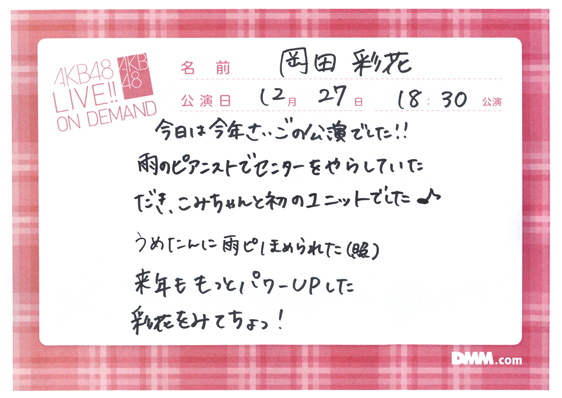 AKB48
LIVE!!
ON DEMAND
AKB
48
名 前 岡田 彩花
公演日 12月 27日 18:30 公演
今日は今年さいごの公演でした!!
雨のピアニストでセンターをやらしていた
だき、こみちゃんと初のユニットでした♪
うめたんに雨ピほめられた(照)
来年ももっとパワーUPした
彩花をみてちょっ!
DMM.com